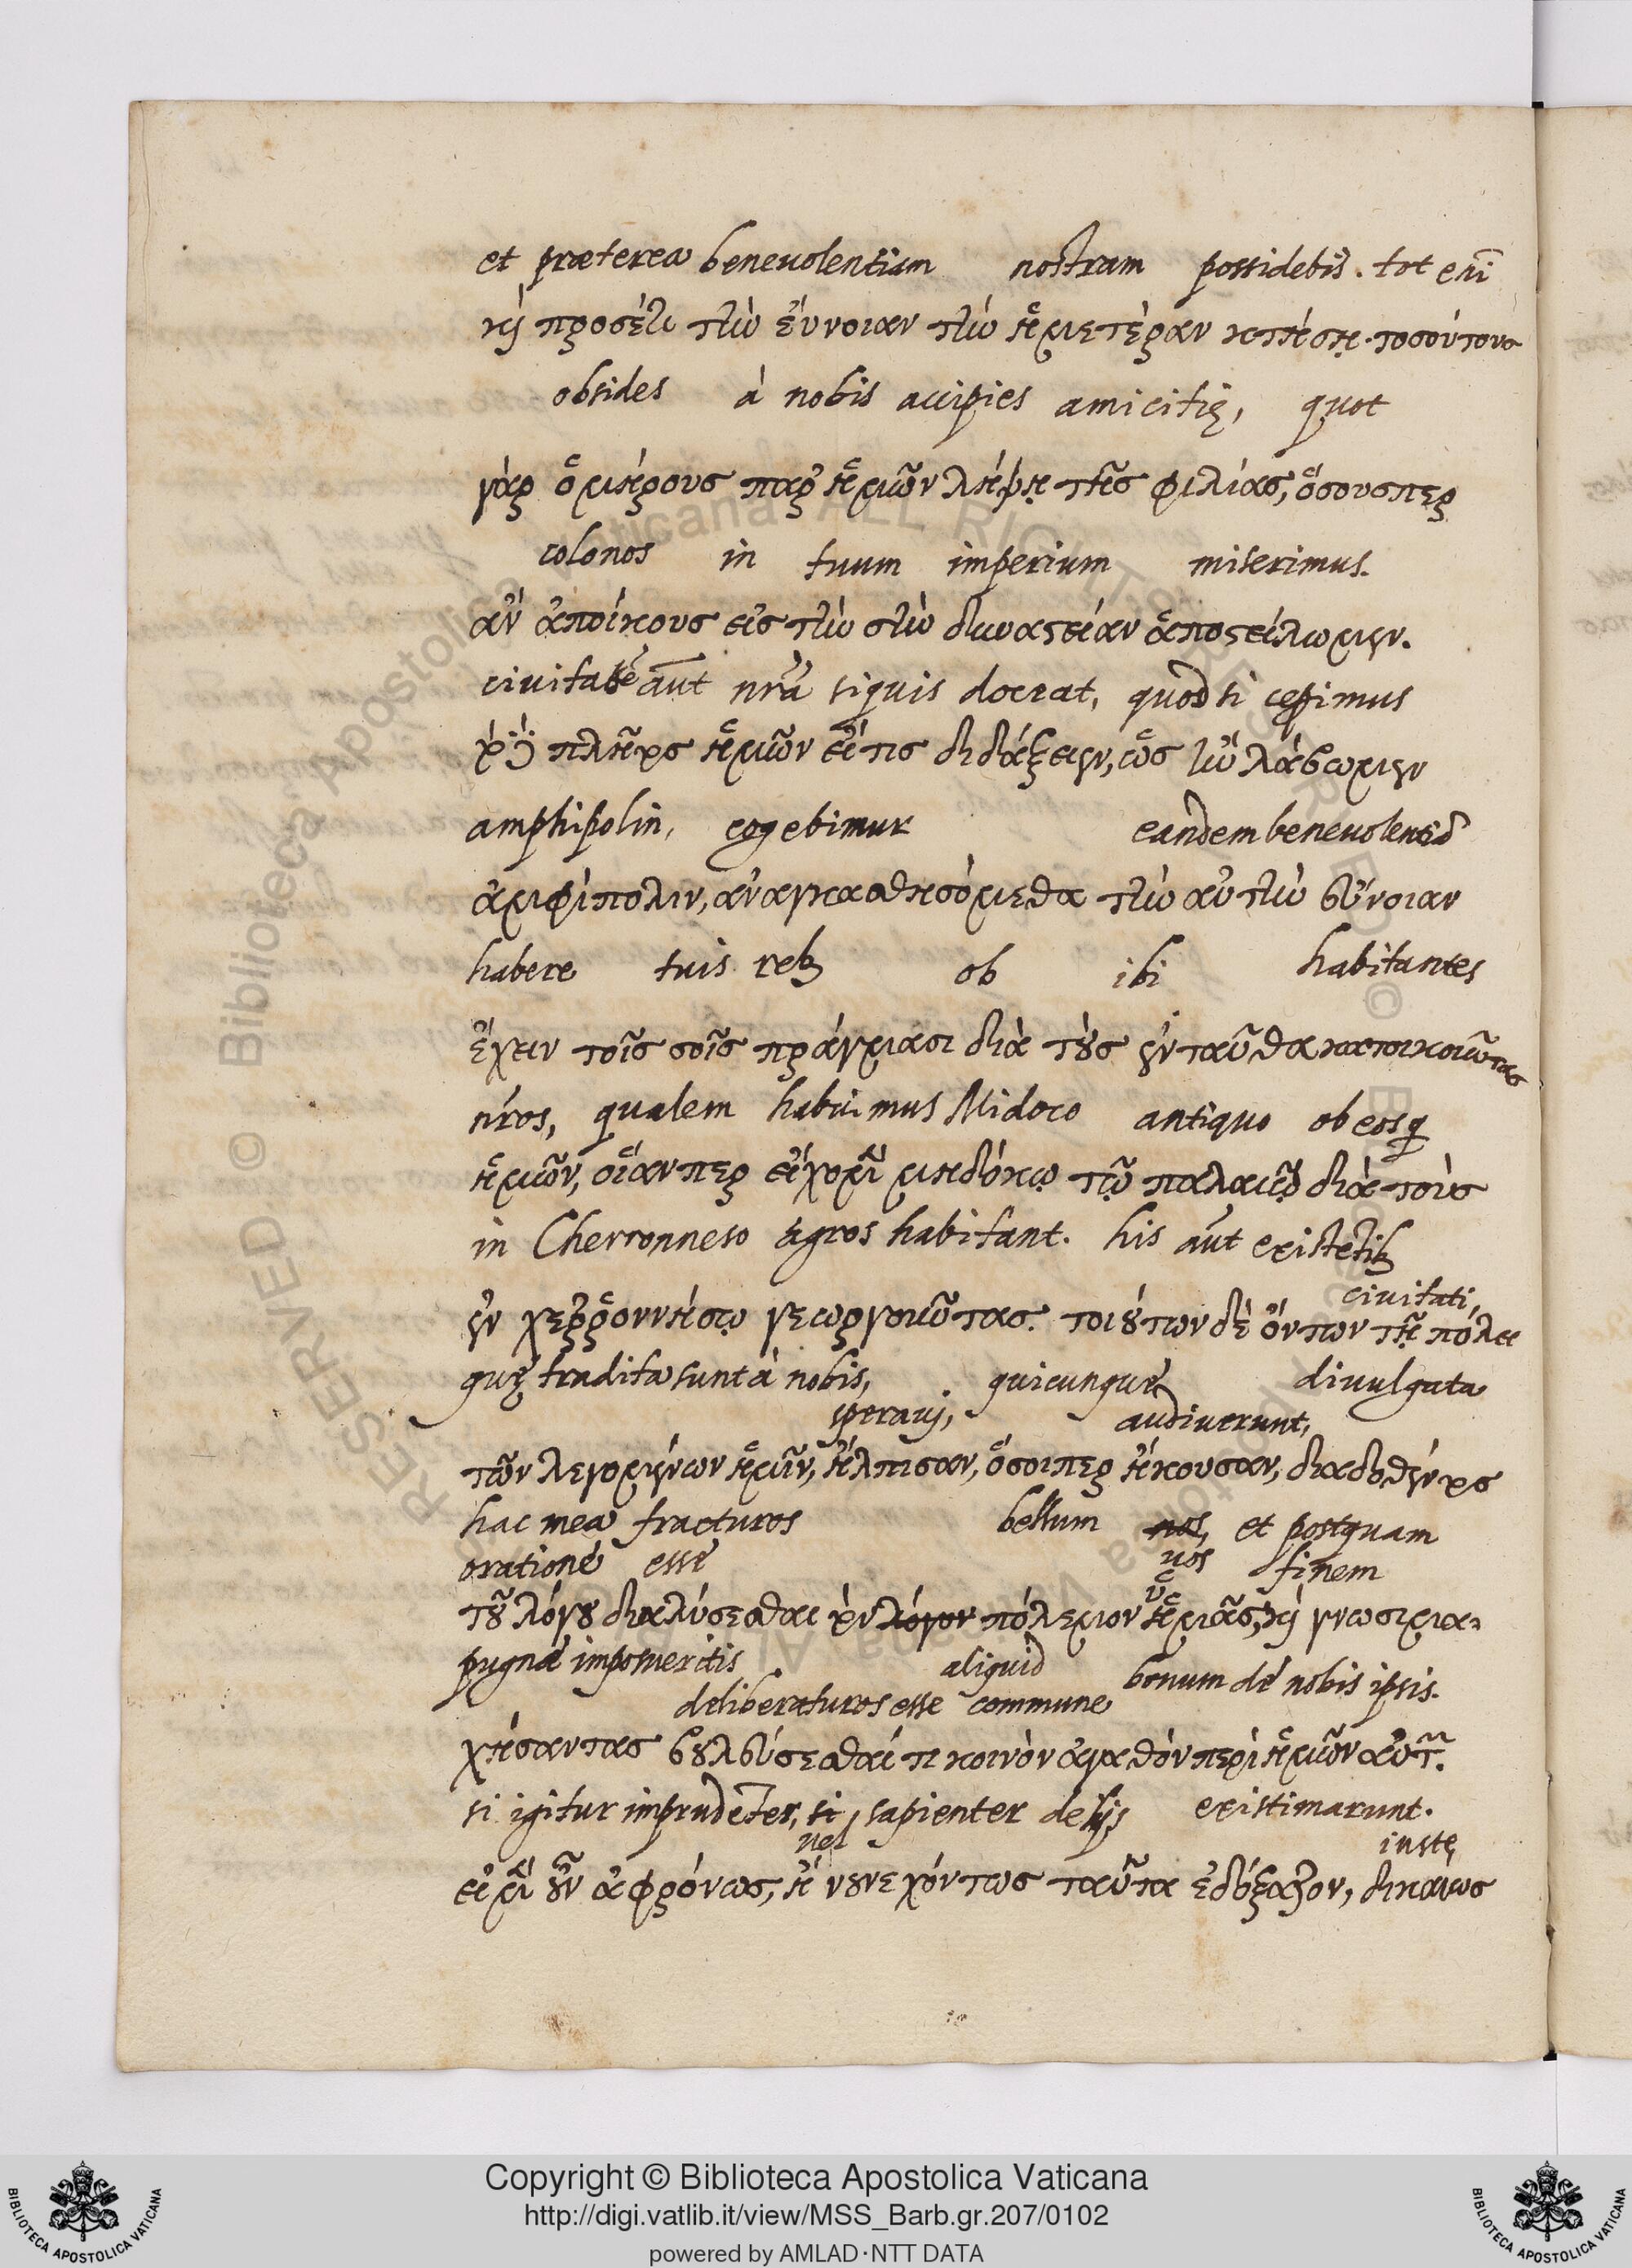 et præterea benevolentiam nostram possidebis. tot eni̅
καὶ προσέτι τὴν εὔνοιαν τὴν ἡμετέραν κτήσῃ. τοσούτους
obsides à nobis accipies amicitię, quot
γὰρ ὁμήρους παρ' ἡμῶν λήψῃ τῆς φιλίας, ὅσουσπερ
colonos in tuum imperium miserimus.
ἂν ἀποίκους εἰς τὴν σὴν δυναστείαν ἀποστείλωμεν.
civitatē aut̅ nr̅a siquis doceat, quod si cepimus
τὸ δὲ πλῆθος ἡμῶν εἴ τις διδάξειεν, ὡς ἢν λάβωμεν
amphipolin, cogebimur eandem benevolentiā
ἀμφίπολιν, ἀναγκασθησόμεθα τὴν αὐτὴν εὔνοιαν
habere tuis reb; ob ibi habitantes
ἔχειν τοῖς σοῖς πράγμασι διὰ τοὺς ἐνταῦθα κατοικοῦντας
nr̅os, qualem habuimus Midoco antiquo ob eos q
ἡμῶν, οἵανπερ εἴχομεν μηδόκῳ τῷ παλαιῷ διὰ τοὺς
in Cherronneso agros habitant. his aut̅ existētib;
civitati,
ἐν χερῤοννήσῳ γεωργοῦντας. τοιούτων δὲ ὄντων τῇ πόλει
quę tradita sunt à nobis, quicunque divulgata
speravi, audiverunt,
τῶν λεγομένων ἡμῖν, ἤλπισαν, ὅσοιπερ ἤκουσαν, διαδοθέντος
hac mea fracturos bellum nos, et postquam
oratione esse vos finem
τοῦ λόγου διαλύσεσθαι τὸν λόγον πόλεμον ὑ ἡμᾶς, καὶ γνωσιμα-
pugnæ imposueritis aliquid bonum de nobis ipsis.
deliberaturos esse commune
χήσαντας βουλεύσεσθαί τι κοινὸν ἀγαθὸν περὶ ἡμῶν αὐτῶν.
si igitur imprudēter, si, sapienter de ijs existimarunt.
vel iuste
εἰ μὲν οὖν ἀφρόνως, ἢ νουνεχόντως ταῦτα ἐδόξαζον, δικαίως
Copyright © Biblioteca Apostolica Vaticana
http://digi.vatlib.it/view/MSS_Barb.gr.207/0102
powered by AMLAD·NTT DATA
BIBLIOTECA APOSTOLICA VATICANA
BIBLIOTECA APOSTOLICA VATICANA